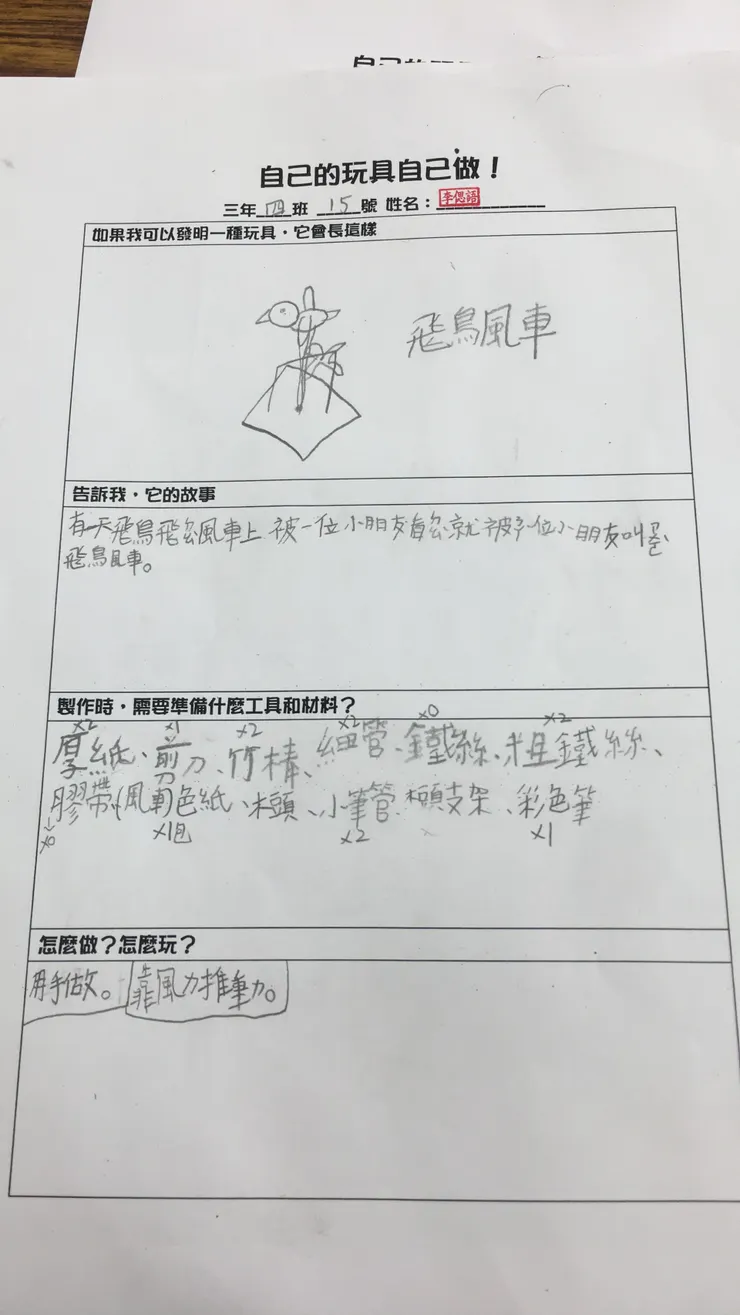 自己的玩具自己做！
三年四班 15號 姓名：李偲語
如果我可以發明一種玩具，它會長這樣
飛鳥風車
告訴我，它的故事
有一天飛鳥飛 風車上 被一位小朋友看 就被 位小朋友叫
飛鳥風車。
製作時，需要準備什麼工具和材料？
x2 x1 x2 x2 x0 x2
厚紙、剪刀、竹 、細管、鐵絲、粗鐵絲、
膠帶、 色紙、木頭、小筆管 木頭支架、彩色筆
x0 x1包 x2 x1
怎麼做？怎麼玩？
用手做。靠風力推動。